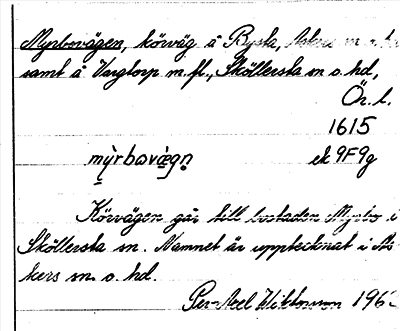 Myrbovägen, körväg å Rysta, Askers sn o. hd
samt å Vargtorp m.fl., Sköllersta sn o. hd,
Ör. l.
1615
myrbovägn ek 9F9g
Körvägen går till bostaden Myrbo i
Sköllersta sn. Namnet är upptecknat i As-
kers sn o. hd.
Per-Axel Wiktorsson 196